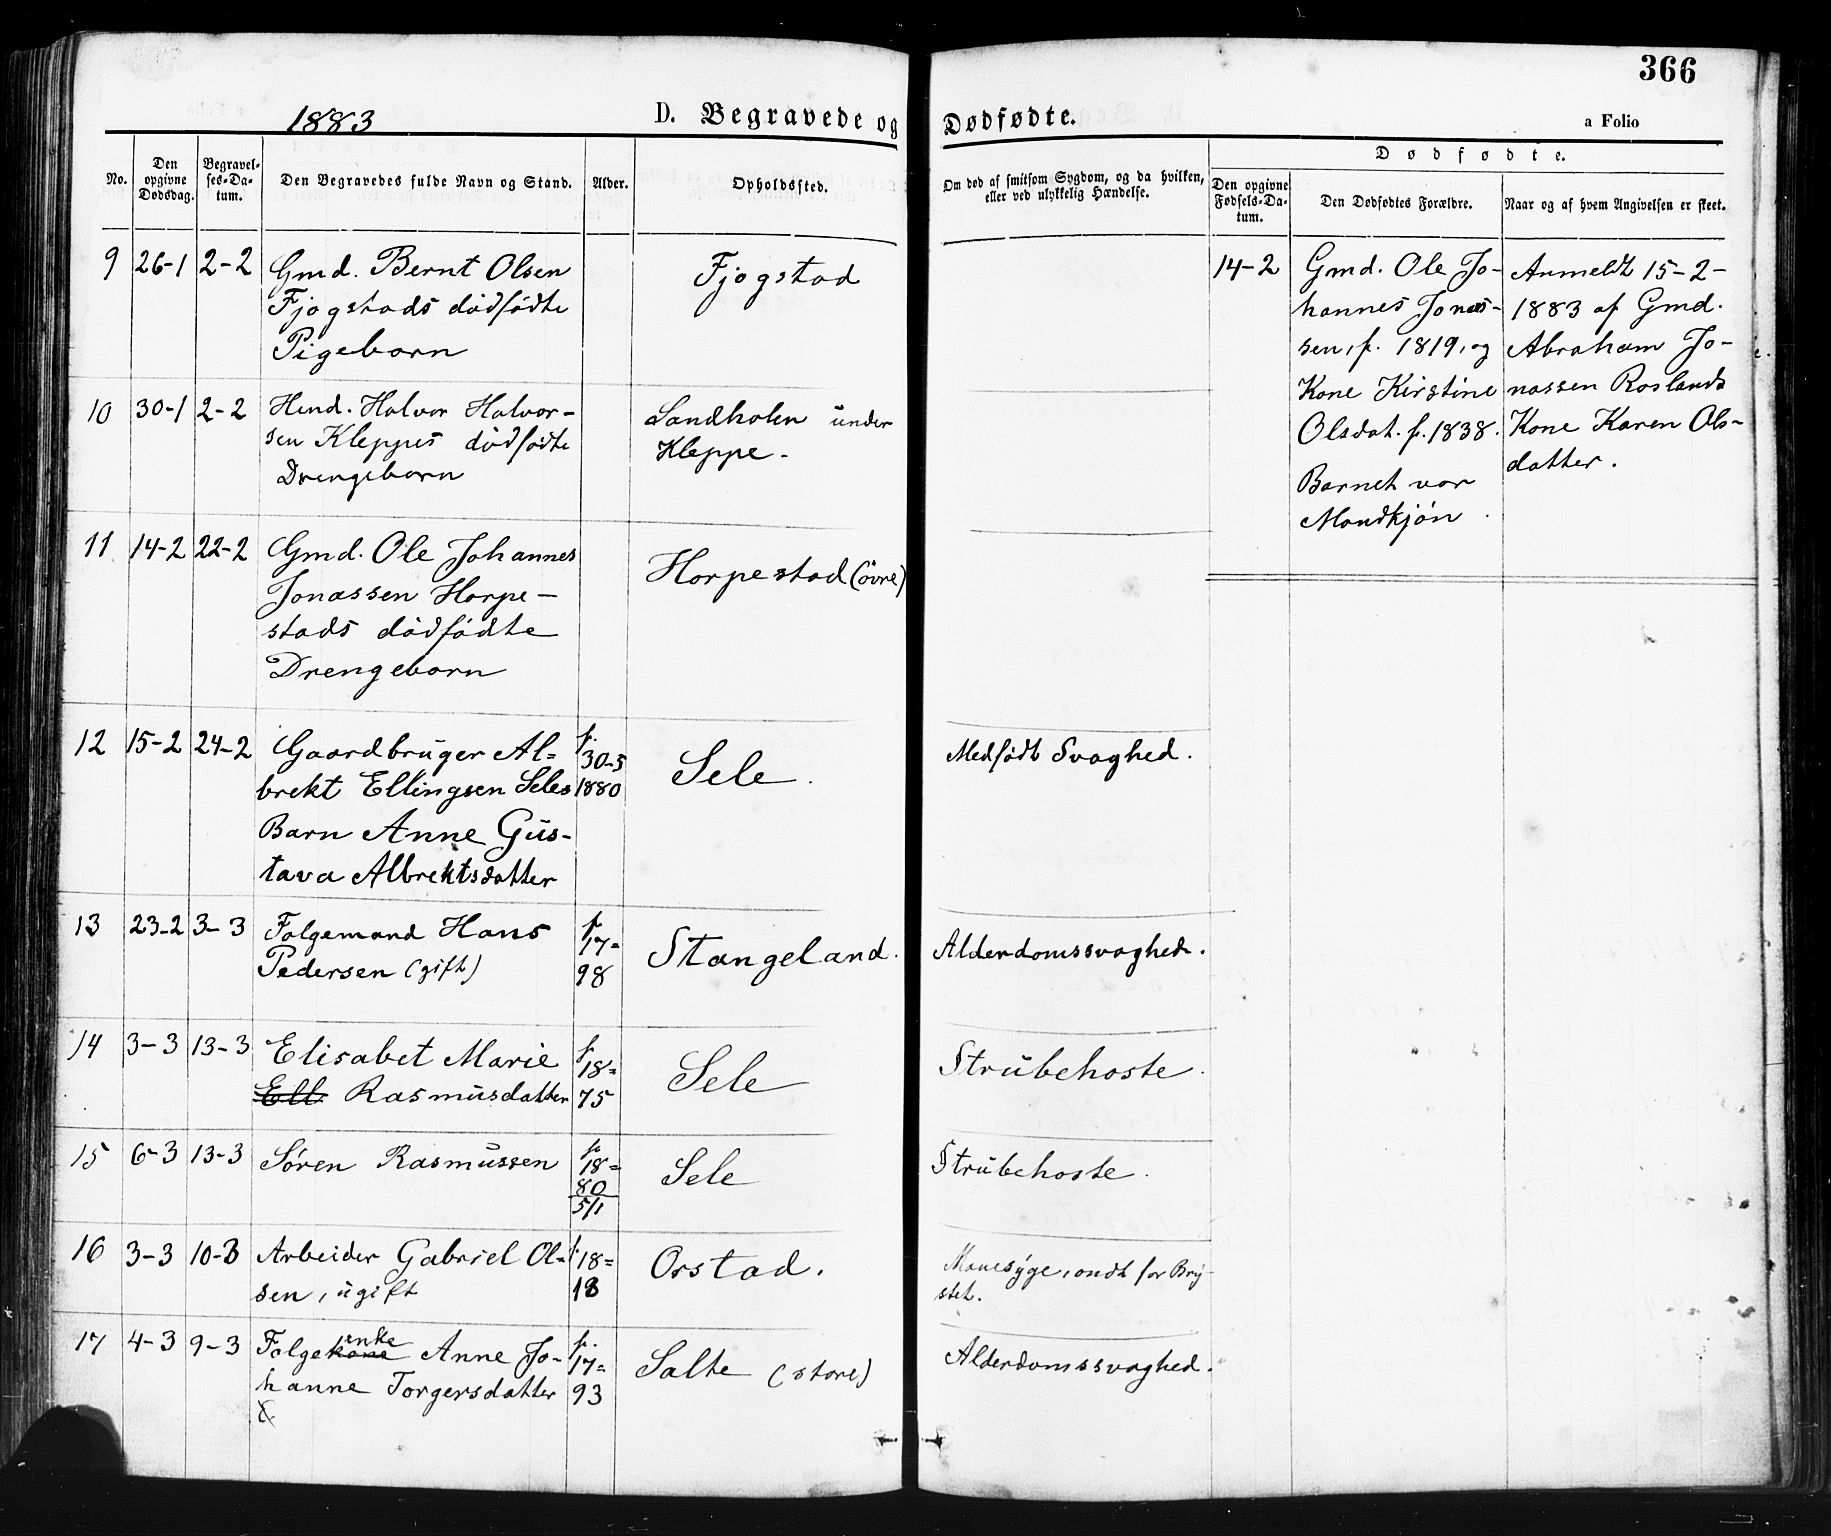 366
1883
D. Begravede og Dødfødte.
a Folio
No.
Den opgivne Dødsdag.
Begravelses-Datum.
Den Begravedes fulde Navn og Stand.
Alder.
Opholdssted.
Om død af smitsom Sygdom, og da hvilken,
eller ved ulykkelig Hændelse.
Dødfødte.
Den opgivne Fødsels-Datum.
Den Dødfødtes Forældre.
Naar og af hvem Angivelsen er skeet.
9 26-1 2-2 Gmd. Bernt Olsen Fjogstad
Fjogstads dødfødte
Pigebarn
10 30-1 2-2 Husd. Halvor Halvor-
sen Kleppes dødfødte
Drengebarn
Sandholen under
Kleppe.
11 14-2 22-2 Gmd. Ole Johannes Horpestad (øvre)
Jonassen Horpe-
stads dødfødte
Drengebarn
12 15-2 24-2 Gaardbruger Al-
brekt Ellingsen Seles
Barn Anne Gus-
tava Albrektsdatter
f.
30-5
1880
Sele.
Medfødt Svaghed.
13 23-2 3-3 Folgemand Hans
Pedersen (gift)
f.
17=
98
Stangeland.
Alderdomssvaghed.
14 3-3 13-3 Elisabet Marie
Ell. Rasmusdatter
f.
18=
75
Sele
Strubehoste.
15 6-3 13-3 Søren Rasmussen
f.
18=
80
5/1
Sele
Strubehoste.
16 3-3 10-3 Arbeider Gabriel Ol=
sen, ugift
f. 18=
18
Orstad.
ondt for Bry-
stet.
17 4-3 9-3 Folgekone enke Anne Jo-
hanne Torgersdatter
f.
17=
93
Salte (store)
Alderdomssvaghed.
14-2
Gmd. Ole Jo-
hannes Jonas-
sen, f. 1819, og
Kone Kirstine
Olsdat. f. 1838.
Barnet var
Mandkjøn.
Anmeldt 15-2-
1883 af Gmd.
Abraham Jo-
nassen Roslands
Kone Karen Ols-
datter.